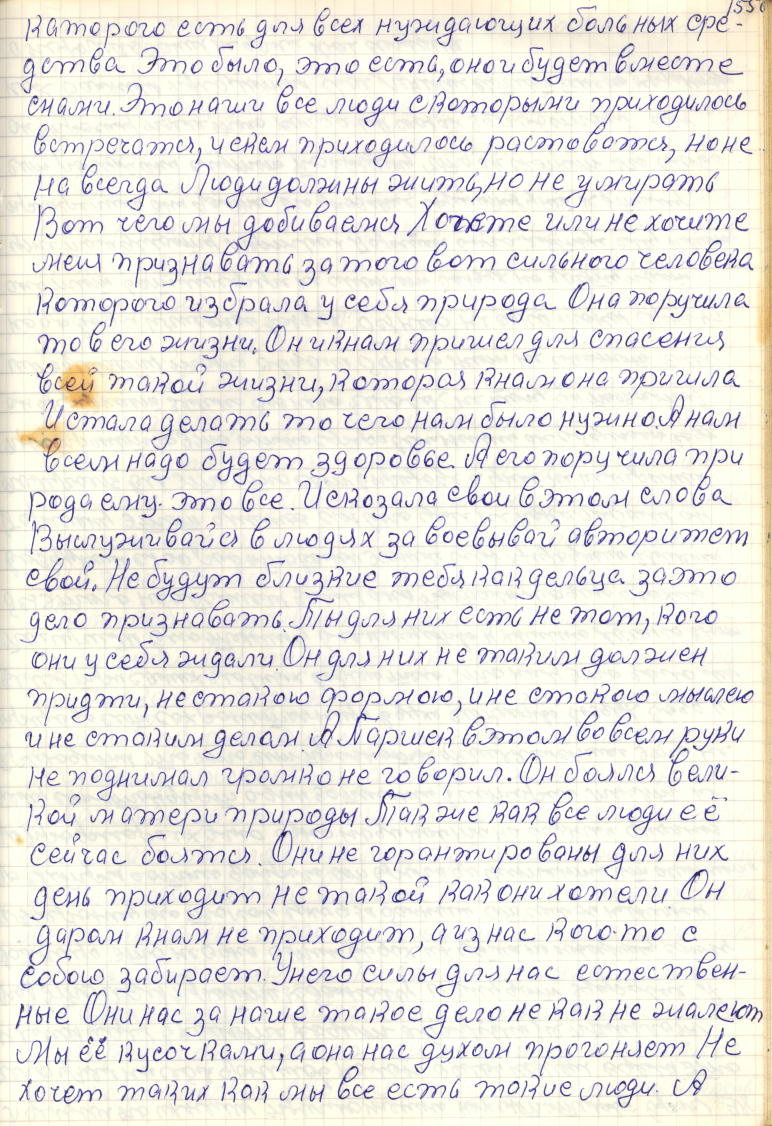 1556
каторого есть для всех нуждающих больных сре-
дства Это было, это есть, оно и будет вместе
снами. Это наши все люди скоторыми приходилось
встречатся, искем приходилось растоватся, но не
на всегда Люди должны жить, но не умирать
Вот чего мы добиваемся Хочете или не хочите
меня признавать за того вот сильного человека
которого избрала у себя природа Она поручила
то в его жизни. Он и кнам пришел для спасения
всей такой жизни, которая кнам она пришла
И стала делать то чего нам было нужно. А нам
всем надо будет здоровье. А его поручила при
рода ему. это все. И сказала свои в этом слова
Выслуживайся в людях за воевывай авторитет
свой. Не будут близкие тебя как дельца за это
дело признавать. Ты для них есть не тот, кого
они у себя ждали. Он для них не таким должен
придти, не стакою формою, и не стакою мыслею
и не стаким делом. А Паршек в этом вовсем руки
не поднимал громко не говорил. Он боялся вели-
кой матери природы. Так же как все люди её
сейчас боятся. Они не горантированы для них
день приходит не такой как они хотели Он
даром кнам не приходит, а из нас кого-то с
собою забирает. У него силы для нас естествен-
ные Они нас за наше такое дело не как не жалеют
Мы её кусочками, а она нас духом прогоняет Не
хочет таких как мы все есть такие люди. А